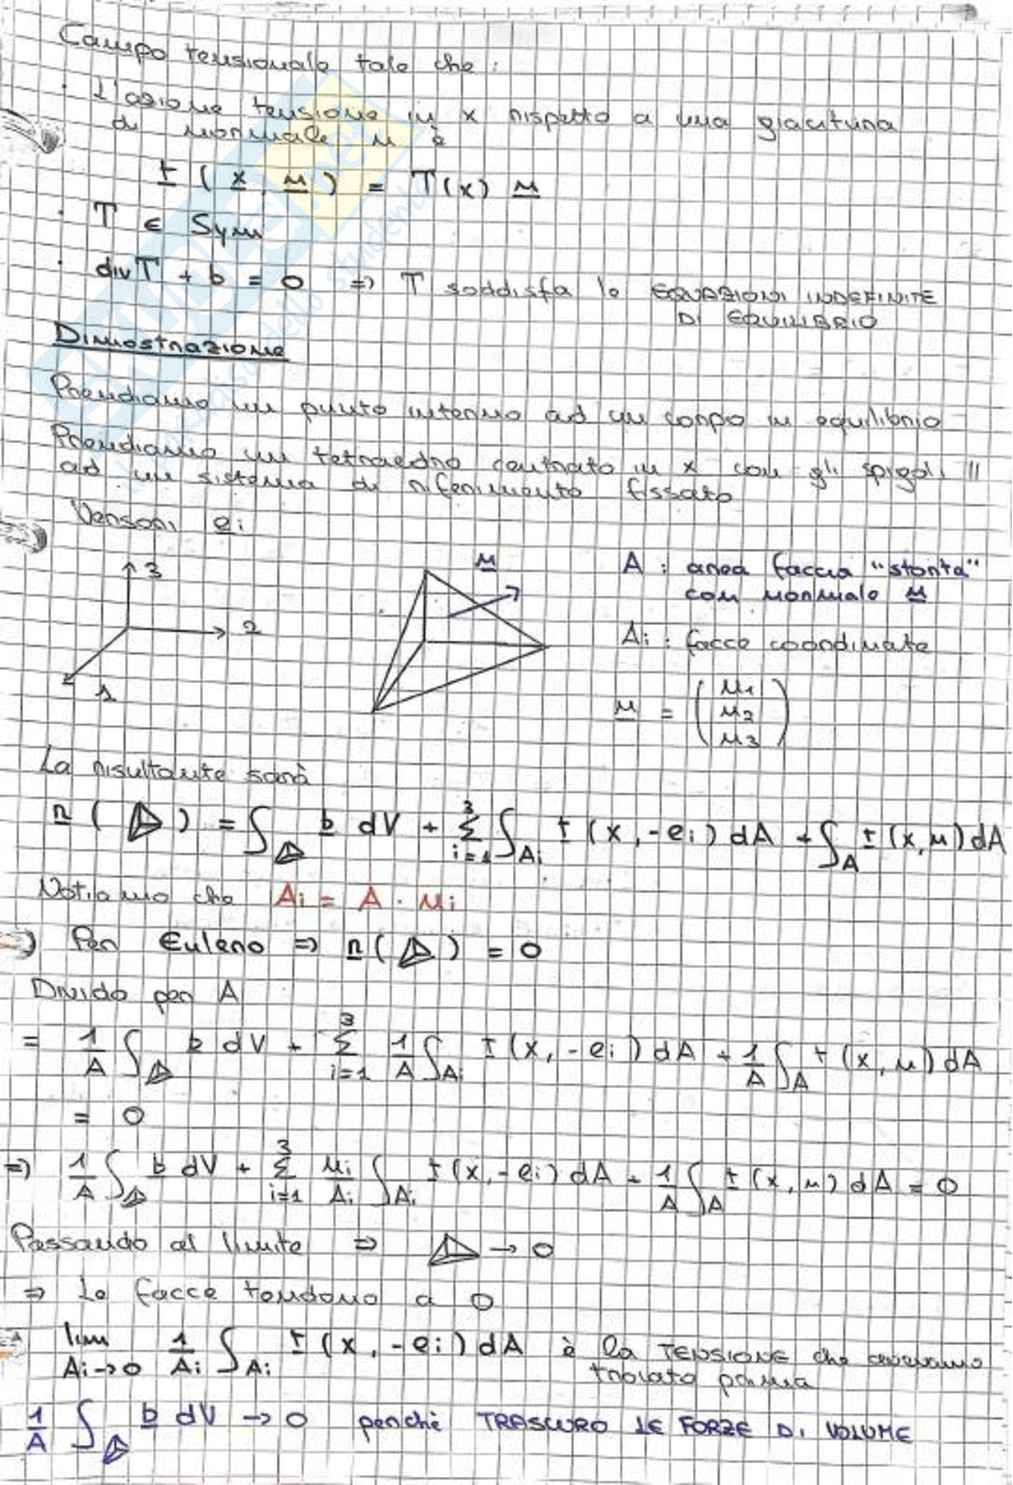 Campo tensionale tale che:
· L'azione tensione in x rispetto a una giacitura
di normale n è
t (x, n) = T(x) n
· T ∈ Sym
· div T + b = 0 ⇒ T soddisfa le EQUAZIONI INDEFINITE
DI EQUILIBRIO
Dimostrazione
Prendiamo un punto interno ad un corpo in equilibrio
Prendiamo un tetraedro centrato in x con gli spigoli //
ad un sistema di riferimento fissato
Versori ei
3
2
1
n
A : area faccia "storta"
con normale n
Ai : facce coordinate
n = (n1
n2
n3)
La risultante sarà
r ( ) = ∫ b dV + Σ i=1 3 ∫Ai t (x, -ei) dA + ∫A t (x, n) dA
Notiamo che Ai = A · ni
Per Eulero ⇒ r ( ) = 0
Divido per A
= 1/A ∫ b dV + Σ i=1 3 1/A ∫Ai t (x, -ei) dA + 1/A ∫A t (x, n) dA
= 0
⇒ 1/A ∫ b dV + Σ i=1 3 ni/Ai ∫Ai t (x, -ei) dA + 1/A ∫A t (x, n) dA = 0
Passando al limite ⇒ → 0
⇒ Le facce tendono a 0
lim Ai→0 1/Ai ∫Ai t (x, -ei) dA è la TENSIONE che avevamo
trovato prima
1/A ∫ b dV → 0 perché TRASCURO LE FORZE DI VOLUME